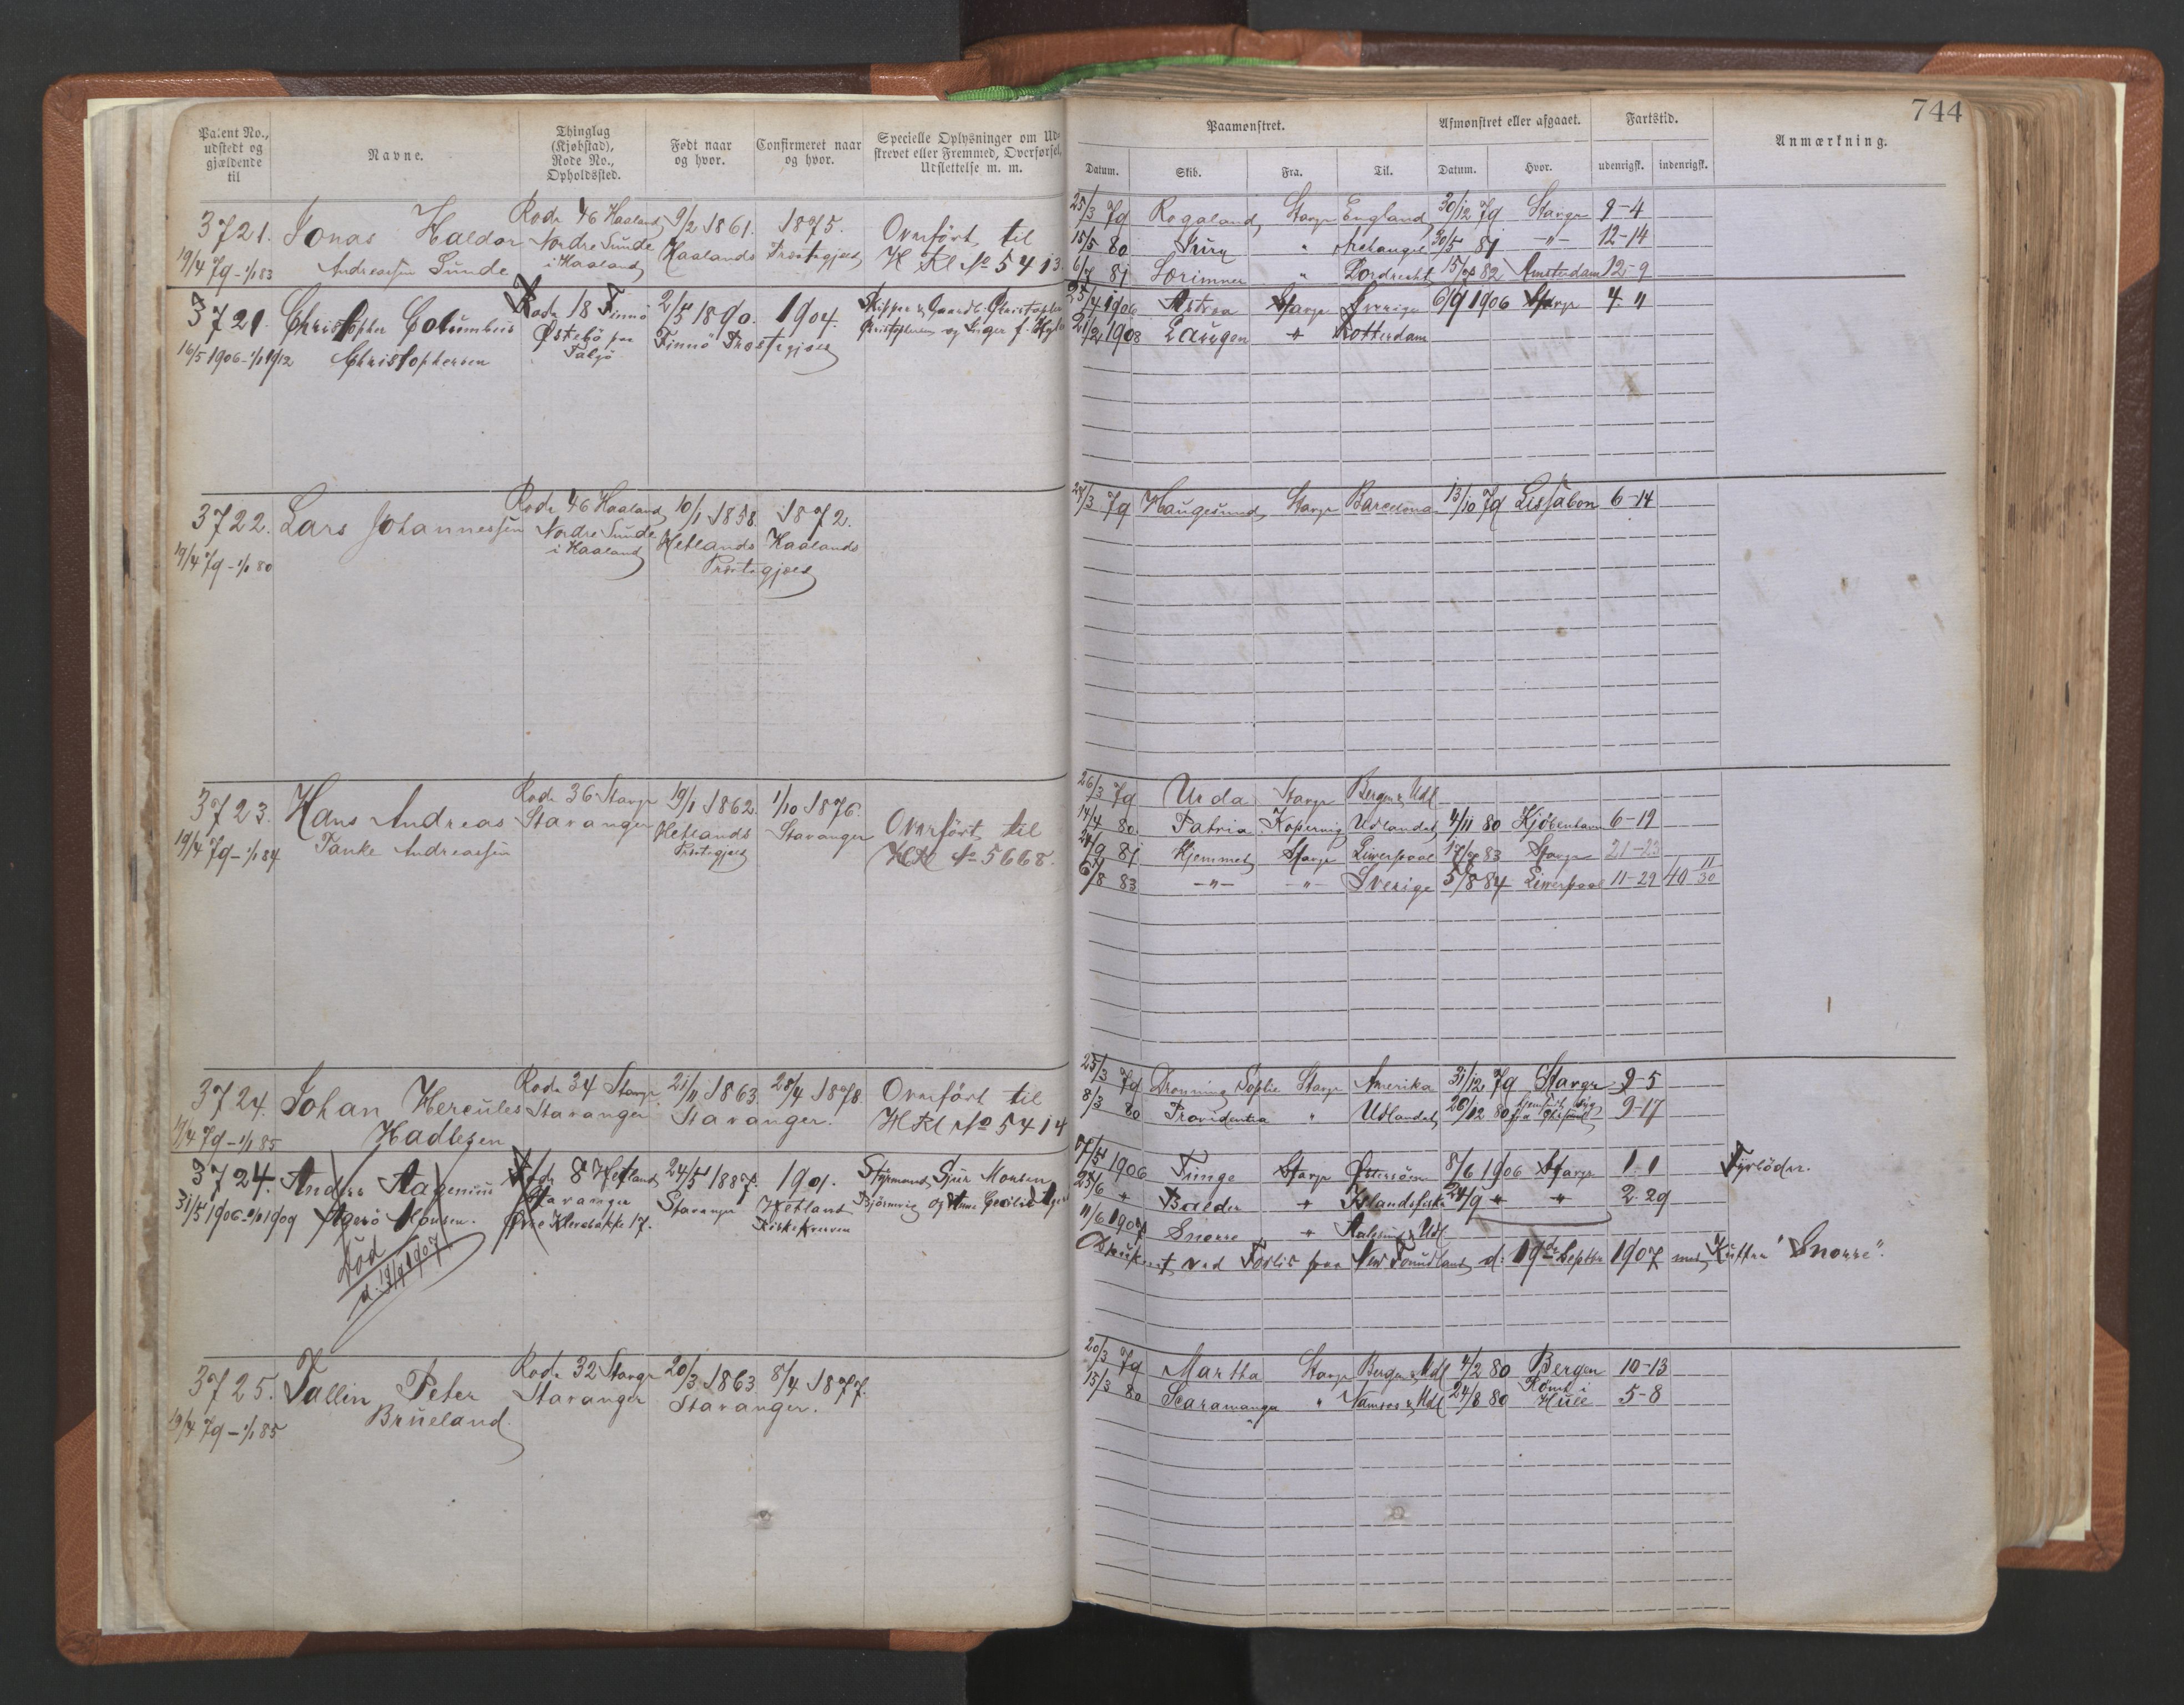 744
Patent No., udstedt og gjældende til
Navne.
Thinglag (Kjøbstad), Rode No., Opholdssted.
Født naar og hvor.
Confirmeret naar og hvor.
Specielle Oplysninger om Udstrevet eller Fremmed, Overførsel, Udslettelse m. m.
Paamønstret.
Afmønstret eller afgaaet.
Fartstid.
Anmærkning.
Datum. Skib. Fra. Til. Datum. Hvor. udenrigsk. indenrigsk.
3721. Jonas Haldor Rode 46 Haaland 9/2 1861. 1875. Overført til
19/4 79 - 1/1 83 Andreassen Sunde Nordre Sunde i Haaland Haalands Præstegjæld H Rl No 5413.
25/3 79 Rogaland Stavgr England 30/12 79 Stavgr 9-4
15/5 80 " Archangel 30/5 81 -"- 12-14
6/7 81 Lorimer " Dordrecht 15/7 82 Amsterdam 12-9
3721. Christopher Columbus Rode 18 Finnø 2/5 1890. 1904.
16/5 1906 - 1/1 1912 Christophersen Østebø paa Talgø Finnø Præstegjæld
25/4 1906 Astrea Stavgr Sverige 6/9 1906 Stavgr 4 "
21/2 1908 Laugen " Rotterdam
3722. Lars Johannessen Rode 46 Haaland 10/1 1858. 1872.
19/4 79 - 1/1 80 Nordre Sunde i Haaland Hetlands Haalands Præstegjæld
24/3 79 Haugesund Stavgr Barcelona 13/10 79 Lissabon 6-14
3723. Hans Andreas Rode 36 Stavgr 19/1 1862. 1/10 1876. Overført til
19/4 79 - 1/1 84 Tanke Andreassen Stavanger Hetlands Præstegjæld Stavanger H Rl No 5668.
26/3 79 Urda Stavgr Bergen & Udl
14/4 80 Patria Kopervig Udlandet 4/11 80 Kjöbenhavn 6-19
24/9 81 Hjemmet Stavgr Liverpool 17/7 83 Stavgr 21-23
6/8 83 -"- -"- Sverige 5/8 84 Liverpool 11-29 40 11/30
3724. Johan Hercules Rode 34 Stavgr 21/11 1863. 28/4 1878. Overført til
19/4 79 - 1/1 85 Hadlesen Stavanger Stavanger. H Rl No 5414
25/3 79 Dronning Sophie Stavgr Amerika 31/12 79 Stavgr 9-5
8/3 80 Providentia " Udlandet 26/12 80 9-17
3724. Anders Aagenius Rode 8 Hetland 24/5 1887. 1901. Styrmand Sjur Monsen
31/5 1906 - 1/1 1909 Agerø Monsen. Stavanger Øvre Kleivebakke 17. Stavanger Hetland
Död d. 19/9 1907
17/5 1906 Tunge Stavgr Østersøen 8/6 1906 Stavgr 1-1 Fyrböder.
25/6 " Balder " Islandsfiske 24/9 " " 2-29
11/6 1907 Snorre " Aalesund & Udl
Druknet ved Forlis paa New Foundland d. 19de Septbr 1907 med Kutter "Snorre".
3725. Tallin Peter Rode 32 Stavgr 20/3 1863. 8/4 1877.
19/4 79 - 1/1 85 Brueland. Stavanger Stavanger.
20/3 79 Martha Stavgr Bergen & Udl 4/2 80 Bergen 10-13
15/3 80 Scaramanga " Namsos & Udl 24/8 80 Rømt i Hull 5-8